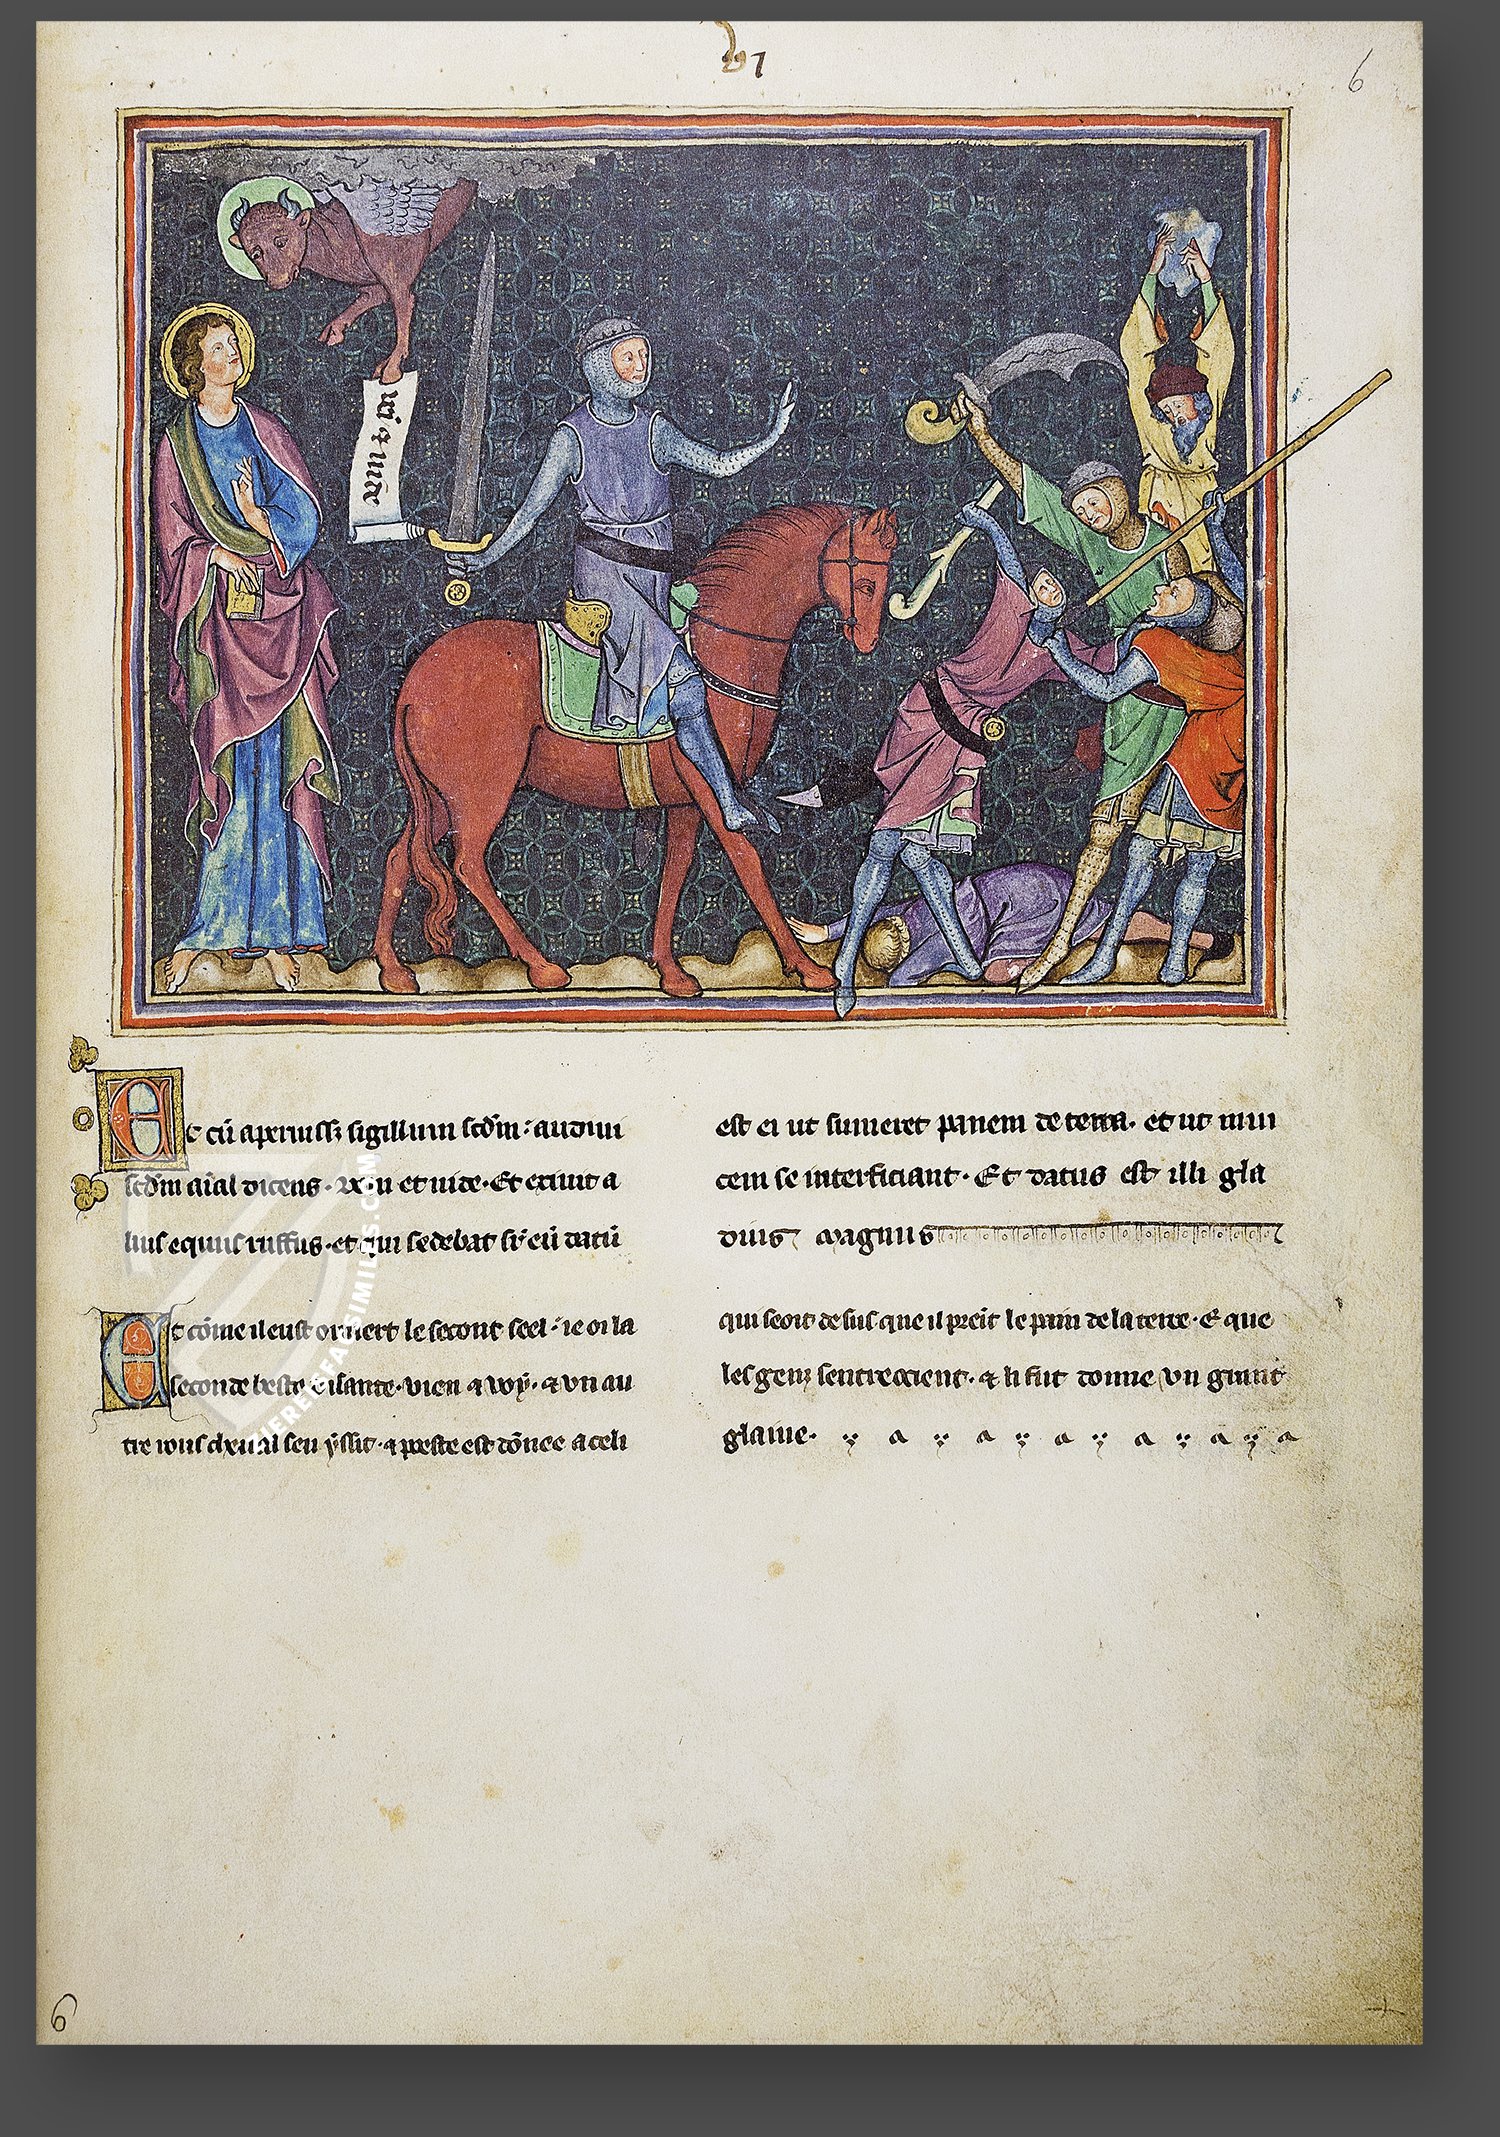 vi
6
ueni & uide
Et cū aperuissz sigillum scdm : audiui
scdm aīal dicens . ueni et uide . Et exiuit a
lius equus ruffus . et qui sedebat sr̄ eū datū
est ei ut sumeret panem de terra . et ut inui
cem se interficiant . Et datus est illi gla
dius magnus
Et cōme il eust ouuert le secont seel : ie oi la
seconde beste disante . vien & voy . & vn au
tre rous cheual sen yssit . & poeste est dōnee a celi
qui seoit desus que il preit le pain de la terre . E que
les genz sentrecient . & li fut donne vn grant
glaiue .
ZIEREISFACSIMILES.COM
6